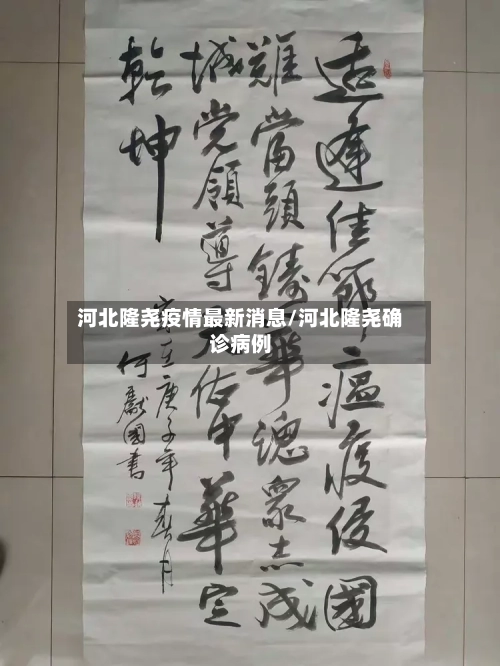 河北隆尧疫情最新消息/河北隆尧确
诊病例
适逢佳節瘟疫侵國
難當頭鑄華衆志成
城党領導佑中華定
乾坤
庚子年春月
何獻國書